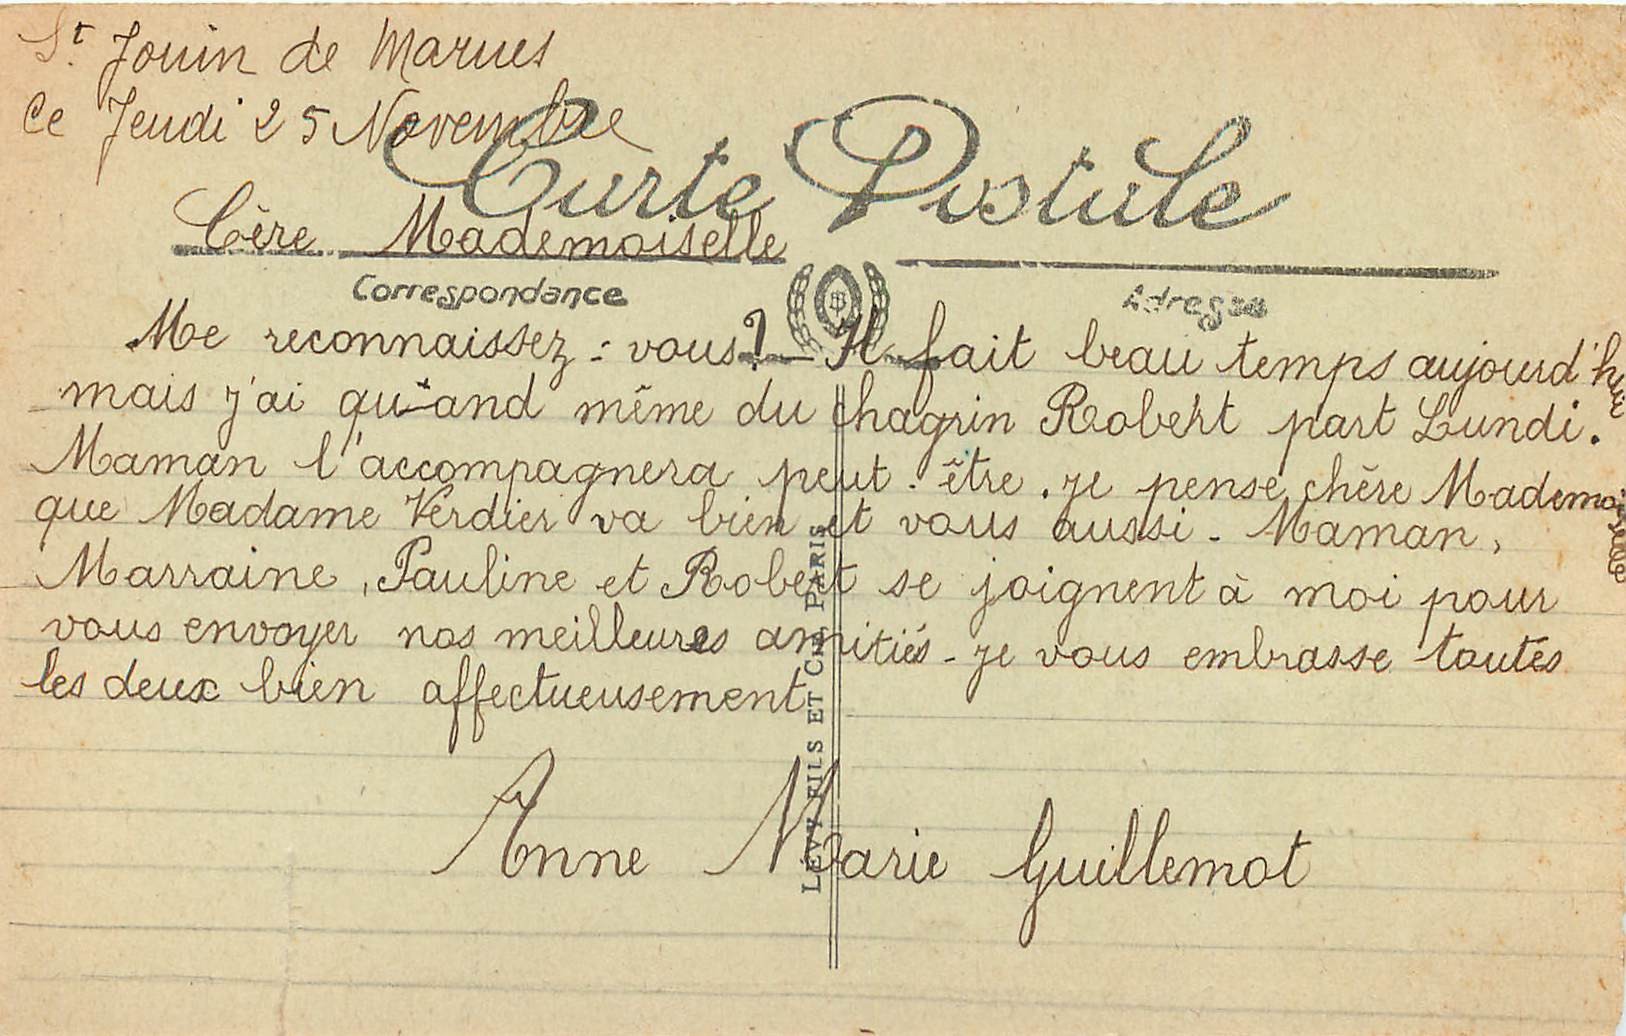 St. Jouin de Marnes
Ce Jeudi 25 Novembre
Carte Postale
Cère Mademoiselle
Correspondance
Adresse
Me reconnaissez-vous? - Il fait beau temps aujourd'hui
mais j'ai quand même du chagrin Robert part Lundi.
Maman l'accompagnera peut-être. je pense chère Mademoiselle
que Madame Verdier va bien et vous aussi - Maman,
Marraine, Pauline et Robert se joignent à moi pour
vous envoyer nos meilleures amitiés - je vous embrasse toutes
les deux bien affectueusement
Anne Marie Guillemot
LÉVY FILS ET CIE, PARIS